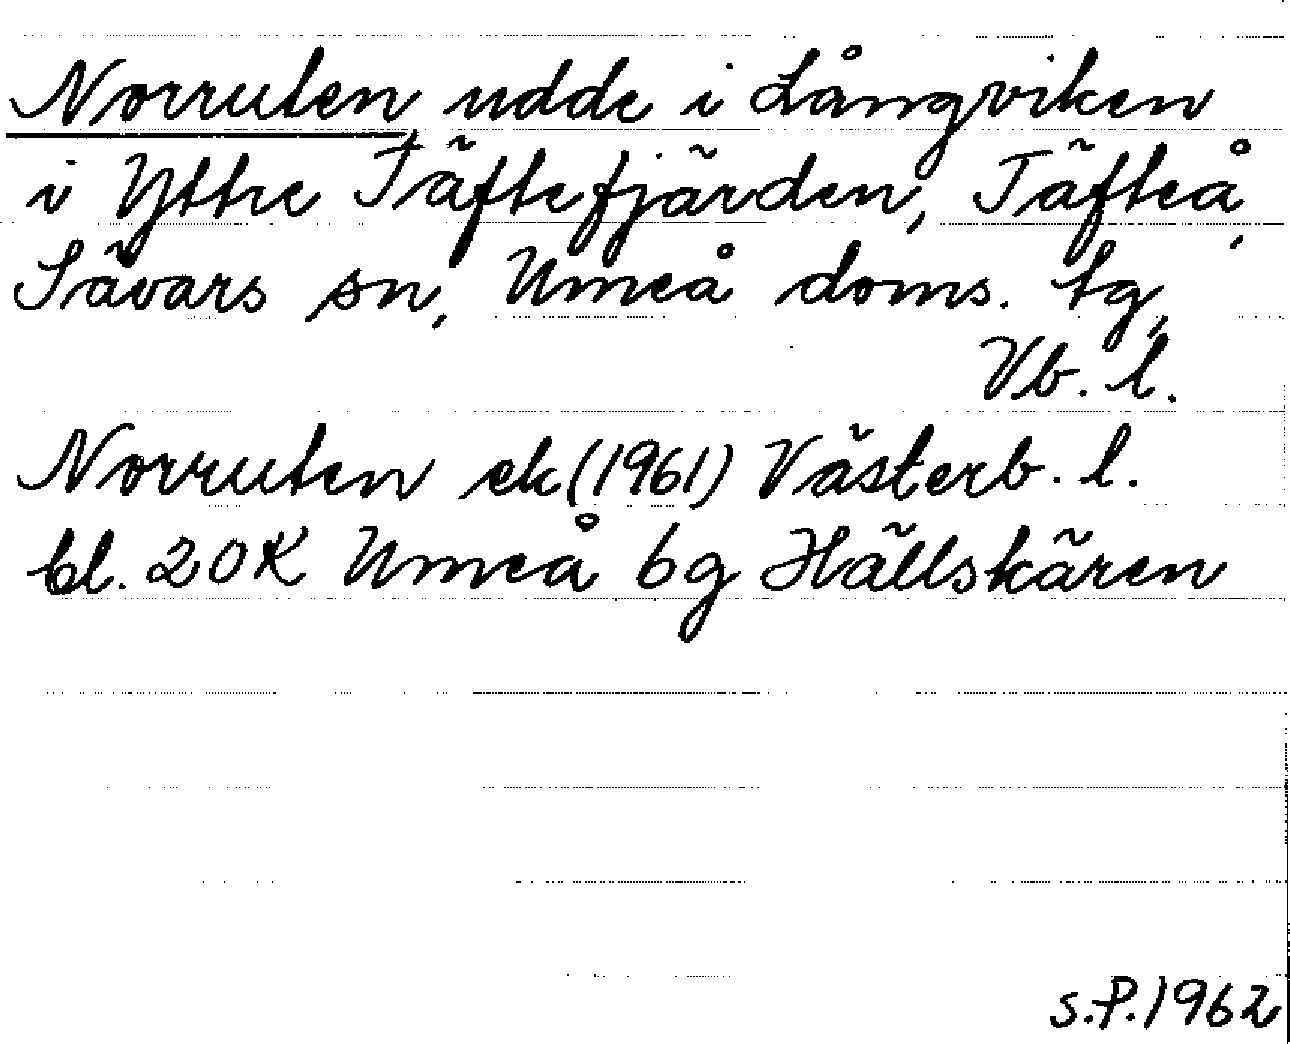 Norruten, udde i Långviken
i Yttre Täftefjärden, Täfteå,
Sävars sn, Umeå doms. tg,
Vb. l.
Norruten ek (1961) Västerb. l.
bl. 20K Umeå 6g Hällskären
s.P. 1962